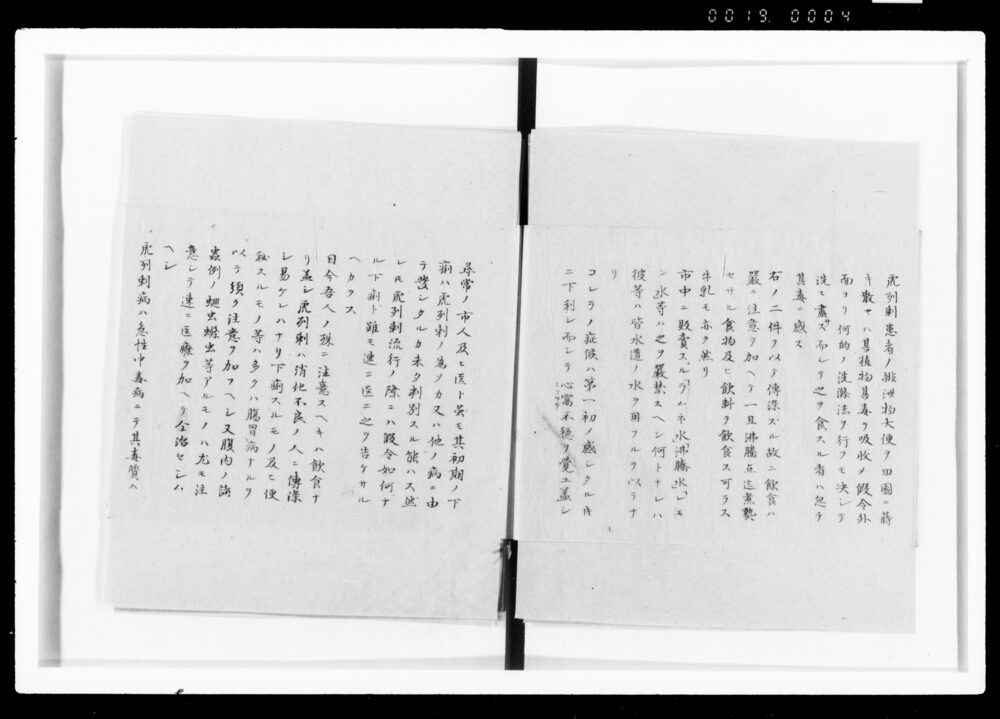 0019. 0004
虎列剌患者ノ排泄物大便ヲ田圃ニ蒔
キ散セハ其植物其毒ヲ吸收メ假令外
面ヨリ何的ノ洗滌法ヲ行フモ決シテ
洗ヒ盡ス 而シテ之ヲ食スル者ハ忽チ
其毒ニ感ス
右ノ二件ヲ以テ傳染スル故ニ飲食ハ
嚴ニ注意ヲ加ヘテ一旦沸騰点迄煮熟
セサル食物及ヒ飲料ヲ飲食ス可ラス
牛乳モ亦タ然リ
市中ニ販賣スル「ラムネ水」「沸騰水」シモ
ン水等ハ之ヲ嚴禁スヘシ何トナレハ
彼等ハ皆水道ノ水ヲ用フルヲ以テナ
リ
コレラノ症候ハ第一初メ感シタルキ
ニ下利シ而シテ心窩不穏ヲ覚エ盖シ
尋常ノ市人及ヒ医ト虽モ其初期ノ下
痢ハ虎列剌ノ為メカ又ハ他ノ病ニ由
テ發シタルカ未タ判別スル能ハス然
レ𪜈虎列剌流行ノ際ニハ假令如何ナ
ル下痢ト雖モ速ニ医ニ之ヲ告ケサル
ヘカラス
目今吾人ノ殊ニ注意スヘキハ飲食ナ
リ盖シ虎列剌ハ消化不良ノ人ニ傳染
シ易ケレハナリ下痢スルモノ及ヒ便
秘スルモノ等ハ多クハ腸胃病ナルヲ
以テ須ク注意ヲ加フヘシ又腹内ノ諸
蟲例ノ蛔虫蟯虫等アルモノハ尤モ注
意シテ速ニ医療ヲ加ヘテ全治セシム
ヘシ
虎列剌病ハ急性中毒病ニテ其毒質ハ